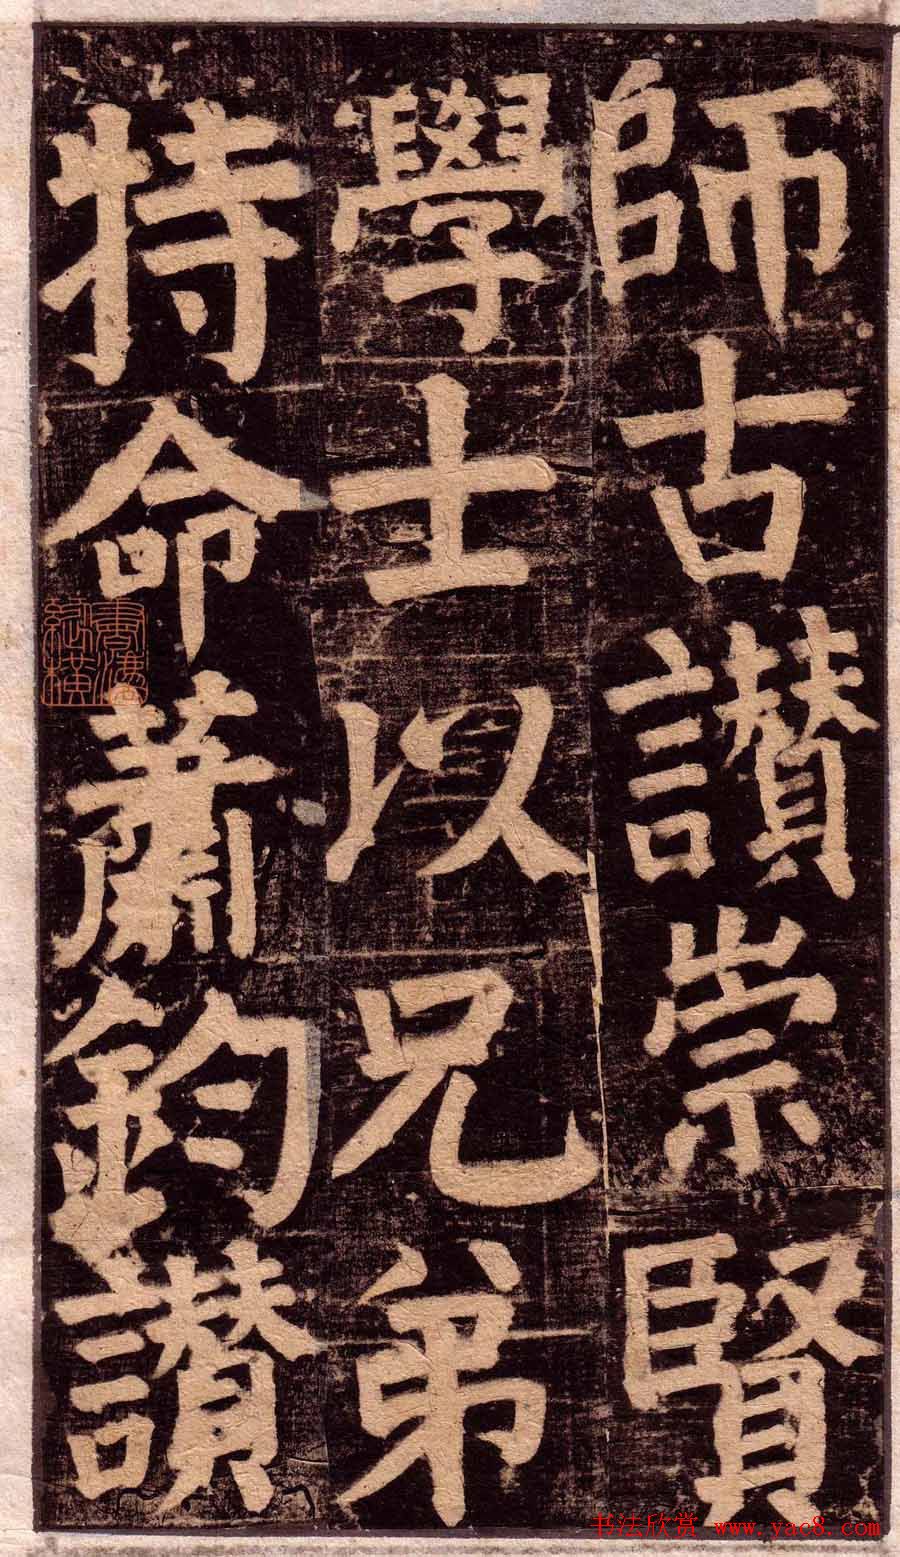 師古讃崇賢
學士以兄弟
特命蕭鈞讃
书法欣赏 www.yac8.com